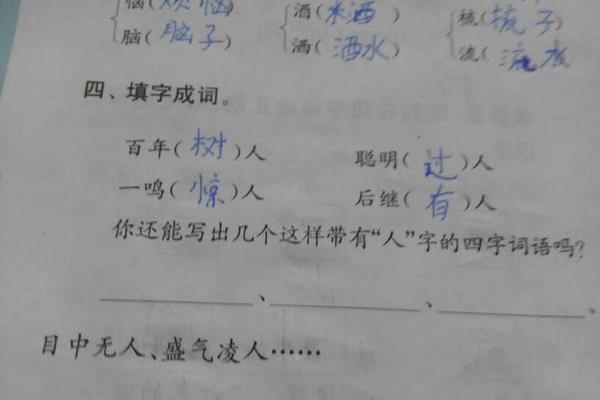 恼(烦恼) 酒(米酒) 梳(梳子)
脑(脑子) 洒(洒水) 流(流水)
四、填字成词。
百年(树)人 聪明(过)人
一鸣(惊)人 后继(有)人
你还能写出几个这样带有“人”字的四字词语吗?
、 、 。
目中无人、盛气凌人……